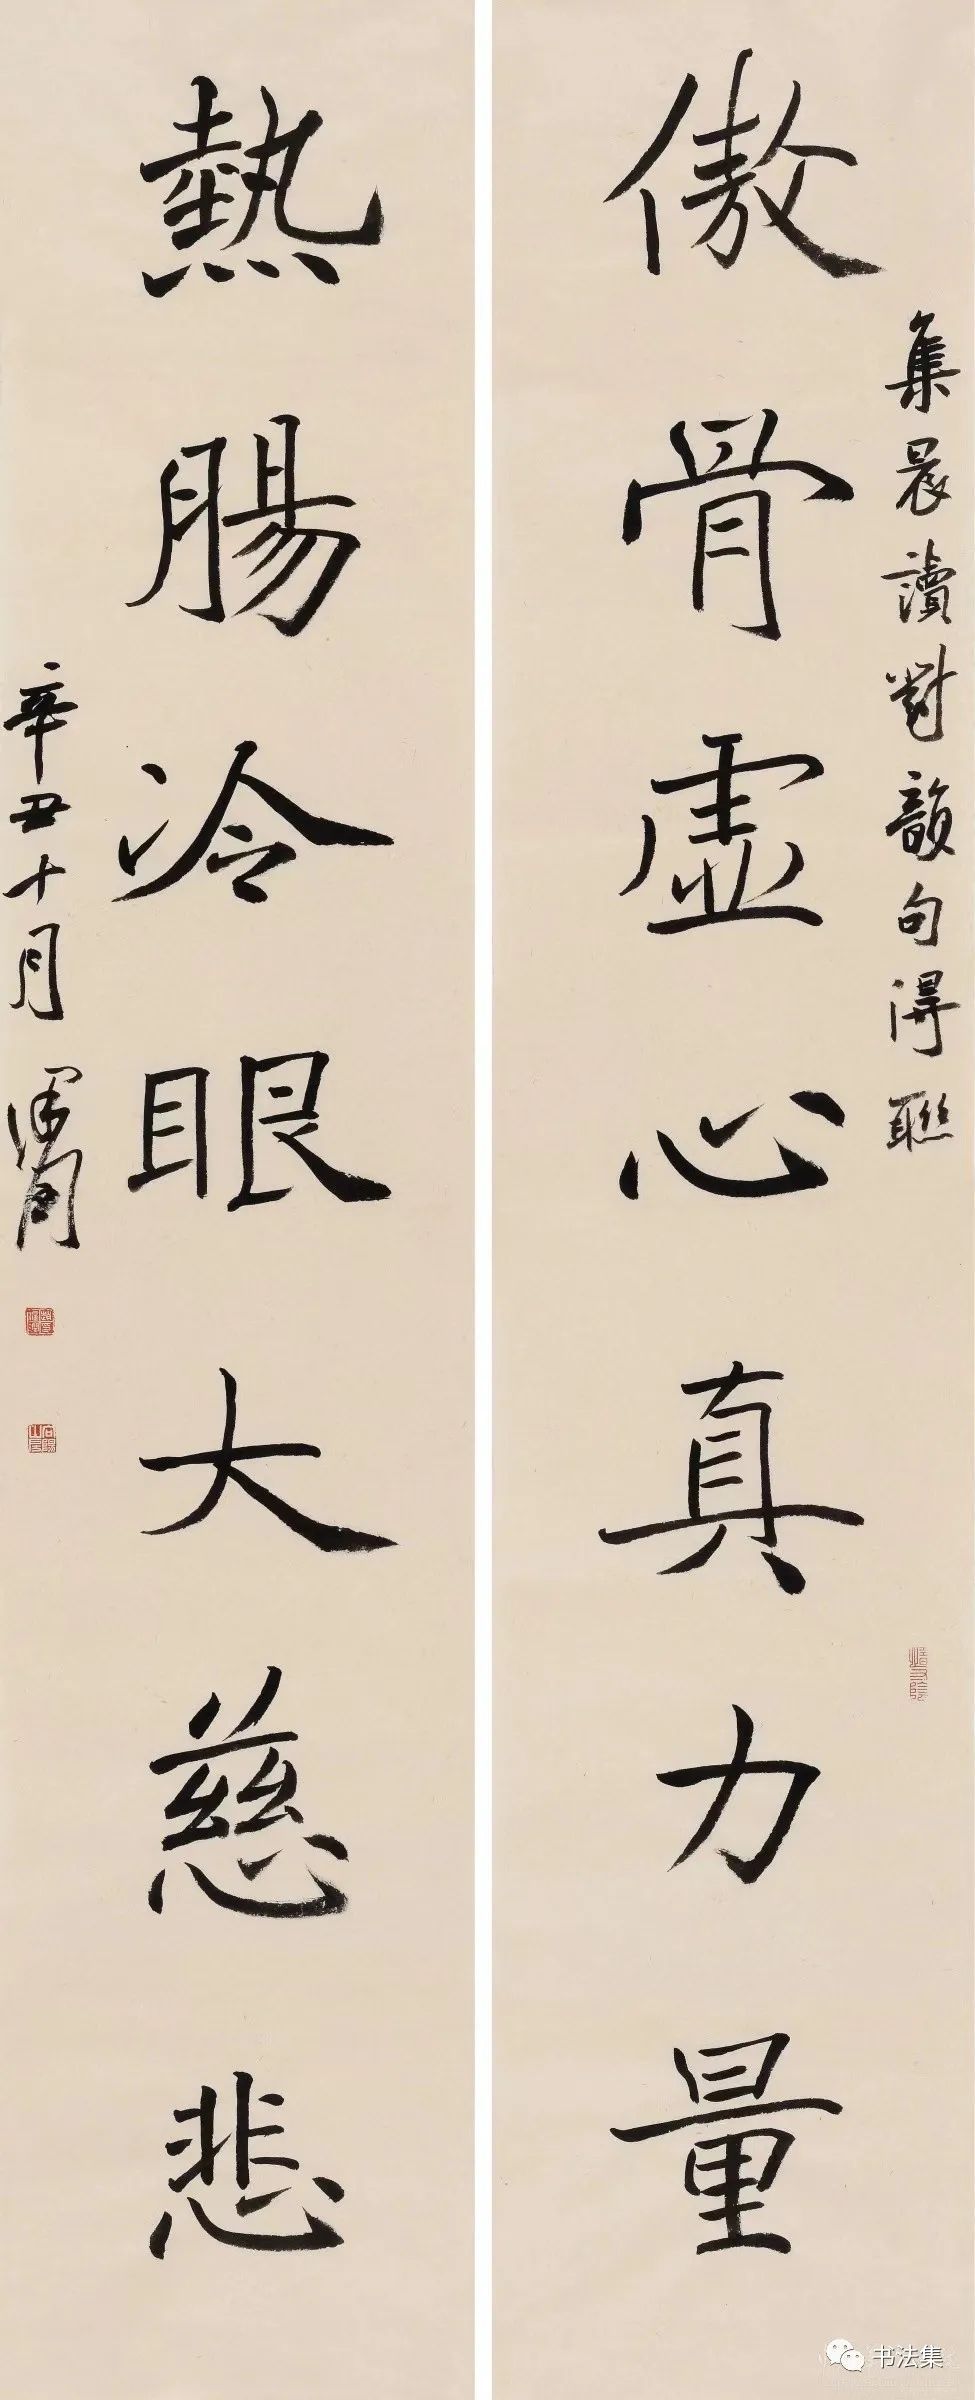 集晨讀對韻句得聯
傲骨虛心真力量
熱腸冷眼大慈悲
辛丑十月
书法集